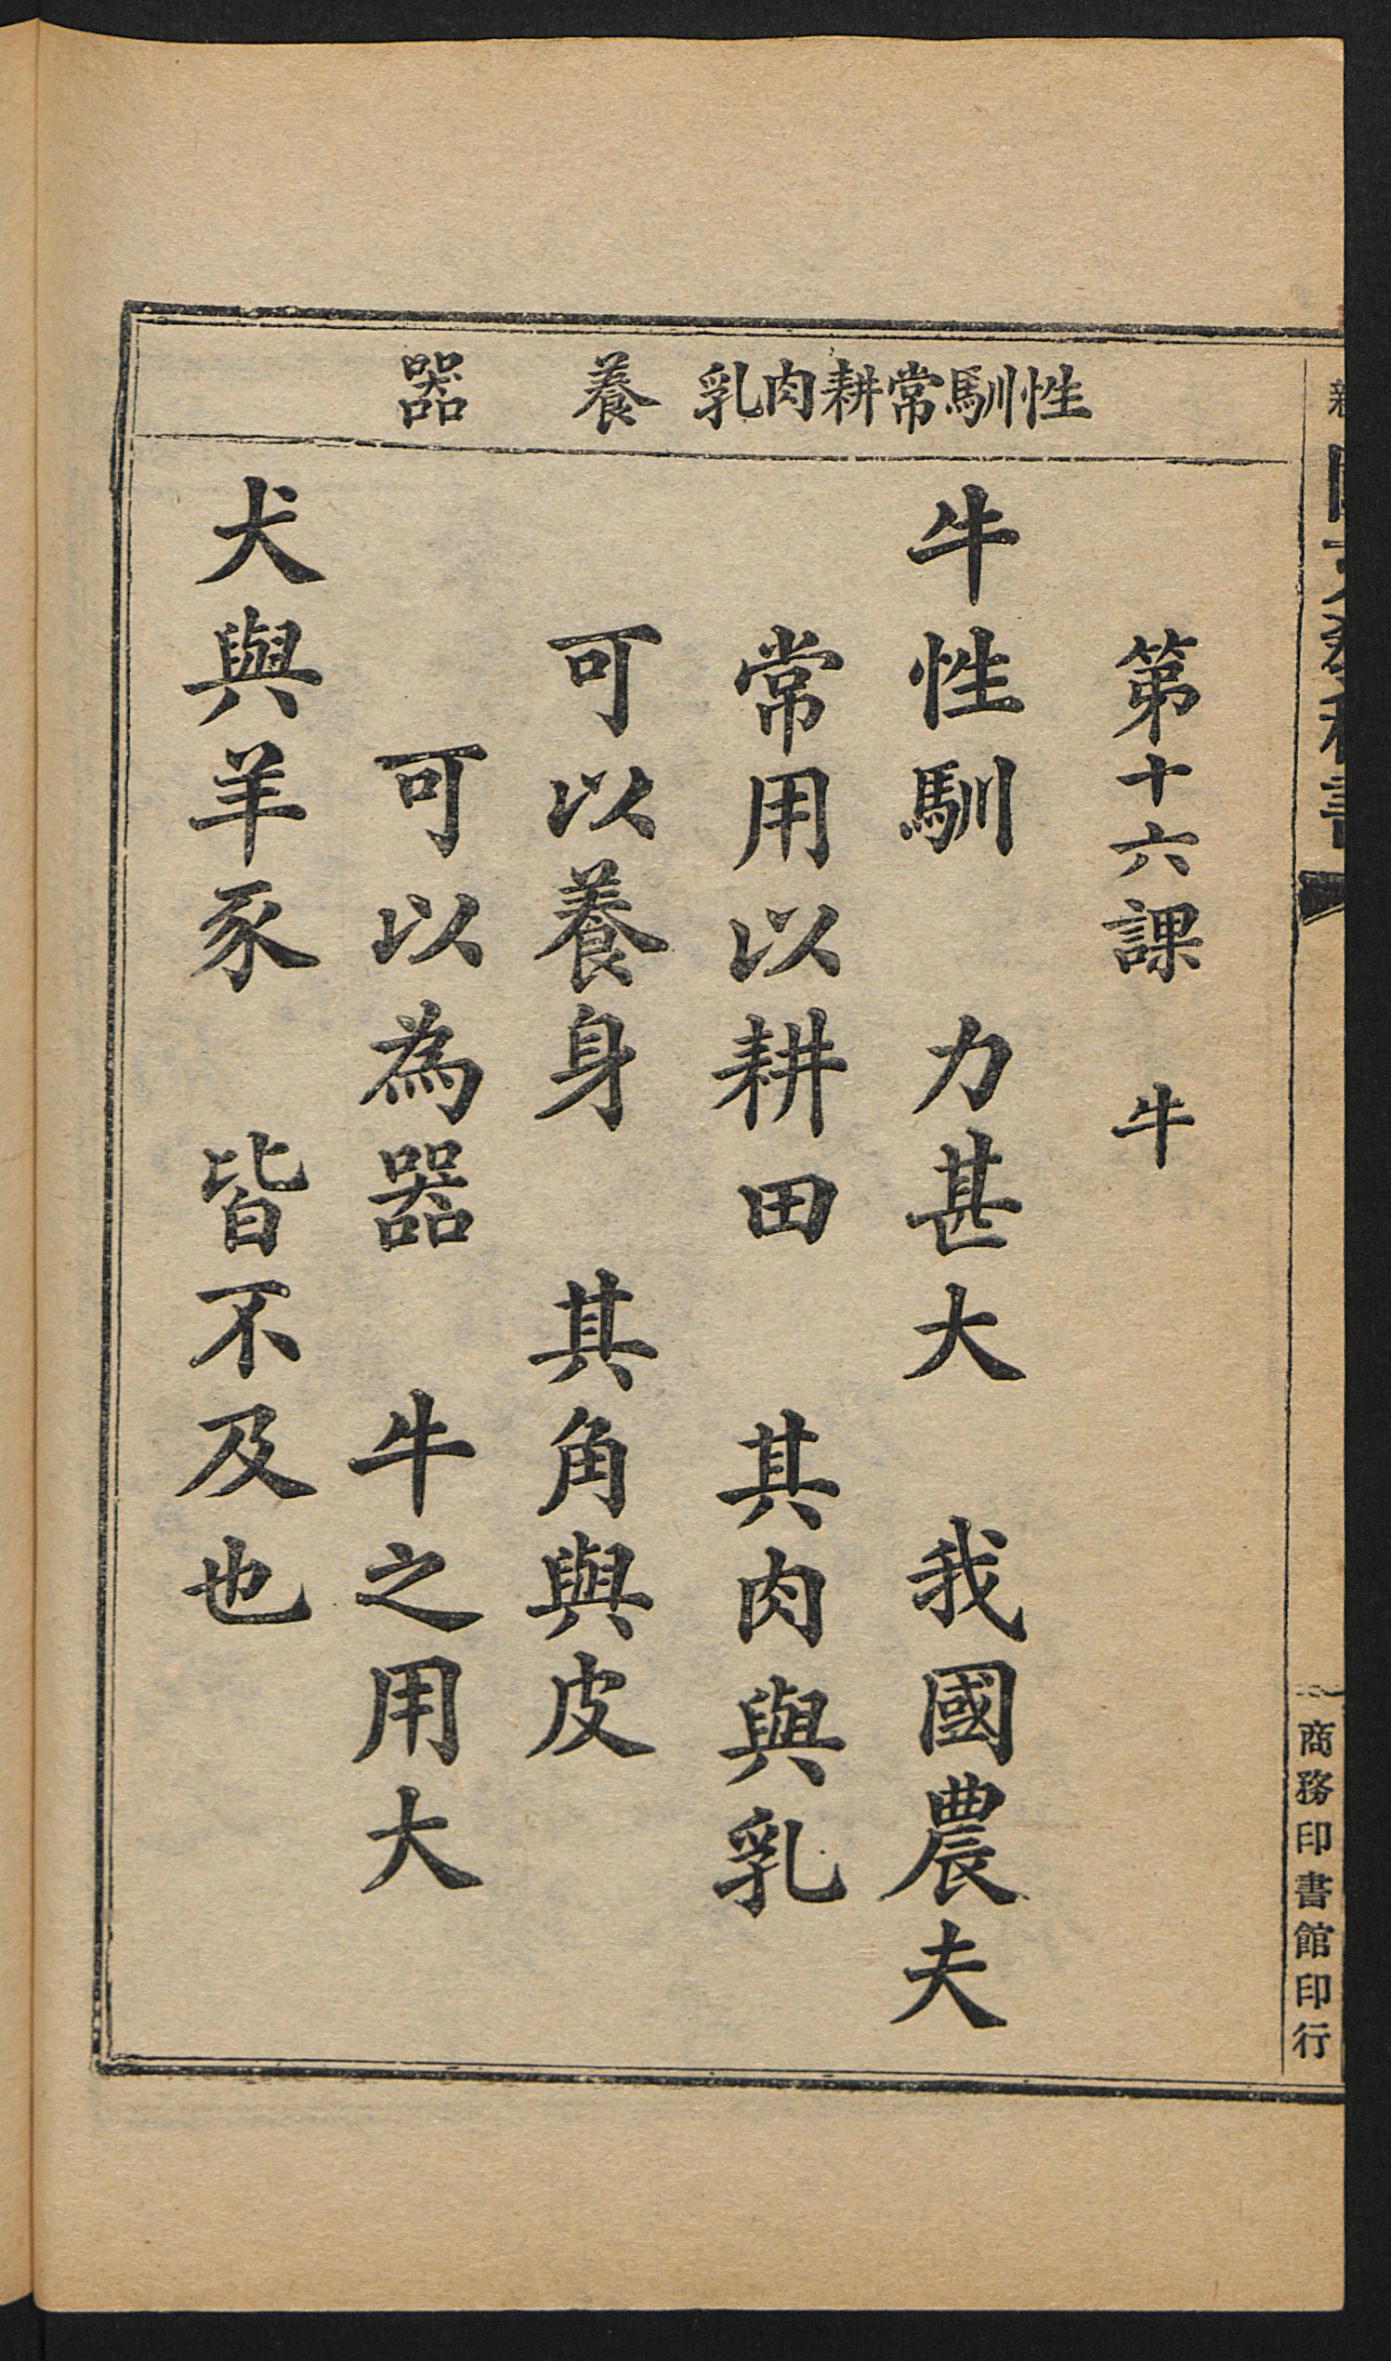 性馴常耕肉乳 養 器
第十六課 牛
牛性馴 力甚大 我國農夫
常用以耕田 其肉與乳
可以養身 其角與皮
可以為器 牛之用大
犬與羊豕 皆不及也
商務印書館印行